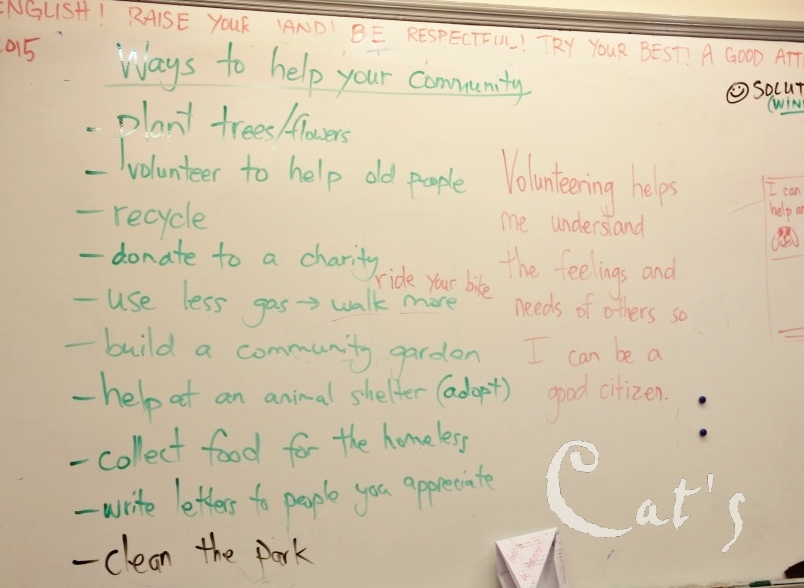 ENGLISH! RAISE YOUR 'AND' BE RESPECTFUL! TRY YOUR BEST! A GOOD ATT
015
Ways to help your Community
SOLUT
(WIN
- plant trees/flowers
- volunteer to help old people
- recycle
- donate to a charity
ride your bike
- use less gas → walk more
- build a community garden
- help at an animal shelter (adopt)
- collect food for the homeless
- write letters to people you appreciate
- clean the park
Volunteering helps
me understand
the feelings and
needs of others so
I can be a
good citizen.
I can
help a
Cat's